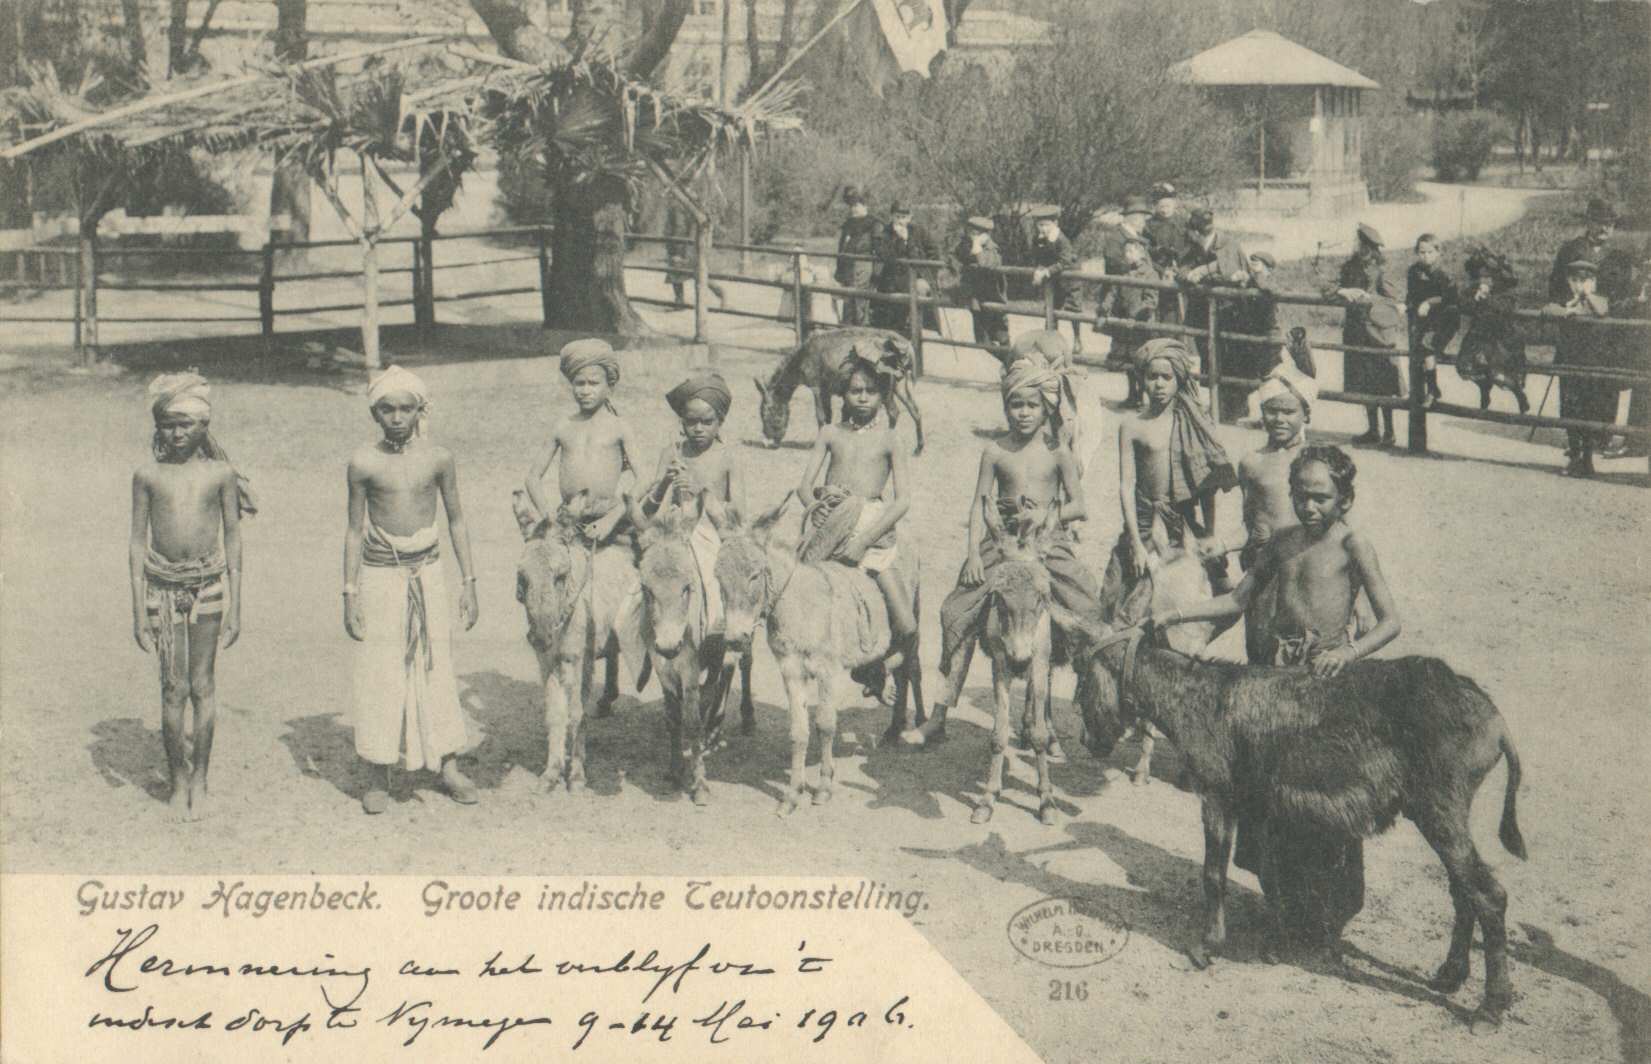 Gustav Hagenbeck. Groote indische Teutoonstelling.
Herinnering aan het verblijf van 't
indisch dorp te Nijmegen 9-14 Mei 1906.
WILHELM
A.-G.
DRESDEN
216